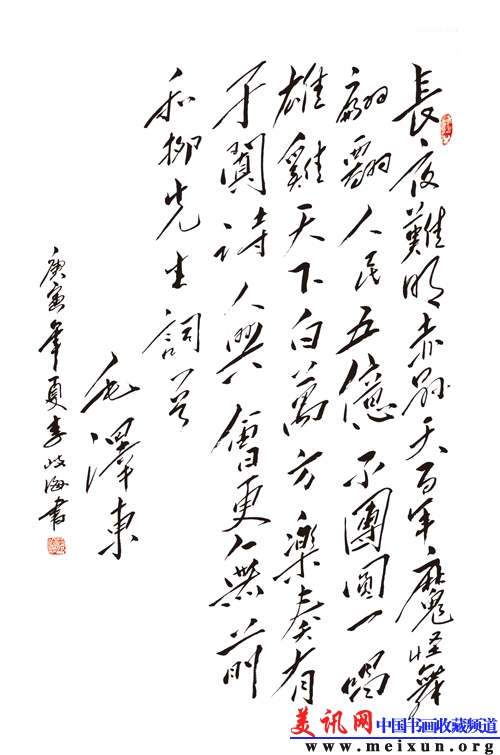 長夜難明赤縣天百年魔怪舞
翩人民五億不團圓一唱
雄雞天下白萬方樂奏有
于闐詩人興會更無前
和柳先生詞
毛澤東
庚寅年夏李岐海書
美讯网中国书画收藏频道
www.meixun.org